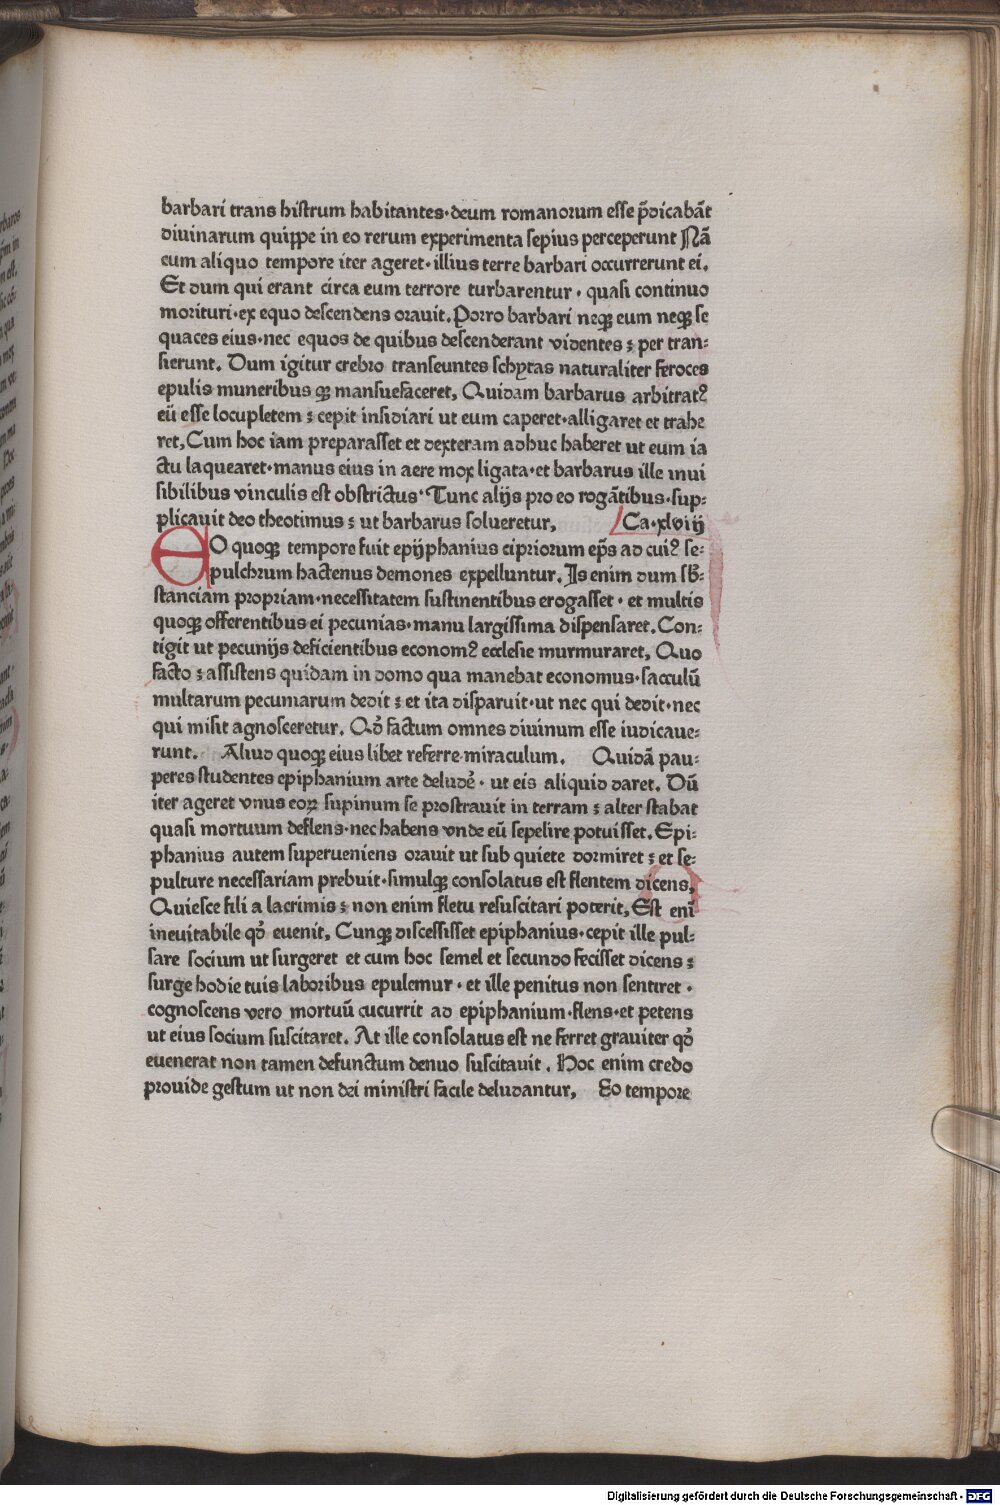 barbari trans histrum habitantes·deum romanorum esse p̄dicabāt
diuinarum quippe in eo rerum experimenta sepius perceperunt Nā
cum aliquo tempore iter ageret·illius terre barbari occurrerunt ei.
Et dum qui erant circa eum terrore turbarentur·quasi continuo
morituri·ex equo descendens orauit. Porro barbari neqꝫ eum neqꝫ se
quaces eius·nec equos de quibus descenderant videntes : per tran:
sierunt. Dum igitur crebro transeuntes schytas naturaliter feroces
epulis muneribus qꝫ mansuefaceret, Quidam barbarus arbitratꝰ
eū esse locupletem : cepit insidiari ut eum caperet·alligaret et trahe
ret, Cum hoc iam preparasset et dexteram adhuc haberet ut eum ia
ctu laquearet·manus eius in aere mox ligata·et barbarus ille inui
sibilibus vinculis est obstrictus· Tunc alijs pro eo rogātibus·sup:
plicauit deo theotimus : ut barbarus solueretur, Ca·xlviij
EO quoqꝫ tempore fuit epijphanius cipriorum ep̄s ad cuiꝰ se:
pulchrum hactenus demones expelluntur. Is enim dum sb̄:
stanciam propriam·necessitatem sustinentibus erogasset·et multis
quoqꝫ offerentibus ei pecunias·manu largissima dispensaret. Con:
tigit ut pecunijs deficientibus economꝰ ecclesie murmuraret, Quo
facto : assistens quidam in domo qua manebat economus·sacculū
multarum pecuniarum dedit : et ita disparuit·ut nec qui dedit·nec
qui misit agnosceretur. Qđ factum omnes diuinum esse iudicaue:
runt. Aliud quoqꝫ eius libet referre miraculum. Quidā pau:
peres studentes epiphanium arte deludē·ut eis aliquid daret. Dū
iter ageret vnus eoꝝ supinum se prostrauit in terram : alter stabat
quasi mortuum deflens·nec habens vnde eū sepelire potuisset. Epi:
phanius autem superueniens orauit ut sub quiete dormiret : et se:
pulture necessariam prebuit·simulqꝫ consolatus est flentem dicens,
Quiesce fili a lacrimis : non enim fletu resuscitari poterit, Est enī
ineuitabile qđ euenit, Cunqꝫ discessisset epiphanius·cepit ille pul:
sare socium ut surgeret et cum hoc semel et secundo fecisset dicens :
surge hodie tuis laboribus epulemur·et ille penitus non sentiret·
cognoscens vero mortuū cucurrit ad epiphanium·flens·et petens
ut eius socium suscitaret. At ille consolatus est ne ferret grauiter qđ
euenerat non tamen defunctum denuo suscitauit. Hoc enim credo
prouide gestum ut non dei ministri facile deludantur, Eo tempore
Digitalisierung gefördert durch die Deutsche Forschungsgemeinschaft - DFG